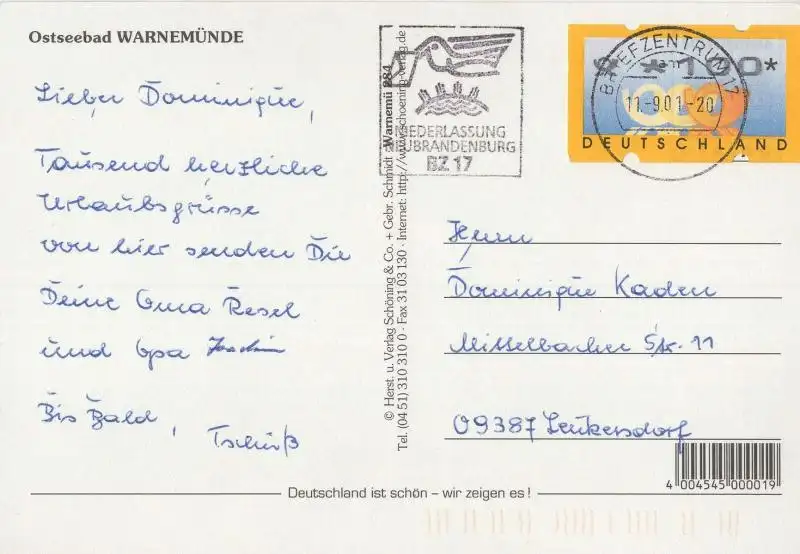 Ostseebad WARNEMÜNDE
Lieber Dominique,
Tausend herzliche
Urlaubsgrüsse
von hier senden Dir
Deine Oma Resel
und Opa Joachim
Bis Bald,
Tschüß
© Herst. u. Verlag Schöning & Co. + Gebr. Schmidt · Warnemü 284
Tel. (04 51) 310 310 0 · Fax 31 03 130 · Internet: http://www.schoening-verlag.de
NIEDERLASSUNG
NEUBRANDENBURG
BZ 17
*100*
BRIEFZENTRUM 17
11.-9.01.-20
DEUTSCHLAND
Herrn
Dominique Kaden
Mittelbacher Str. 11
09387 Leukersdorf
4 004545 000019
Deutschland ist schön – wir zeigen es !